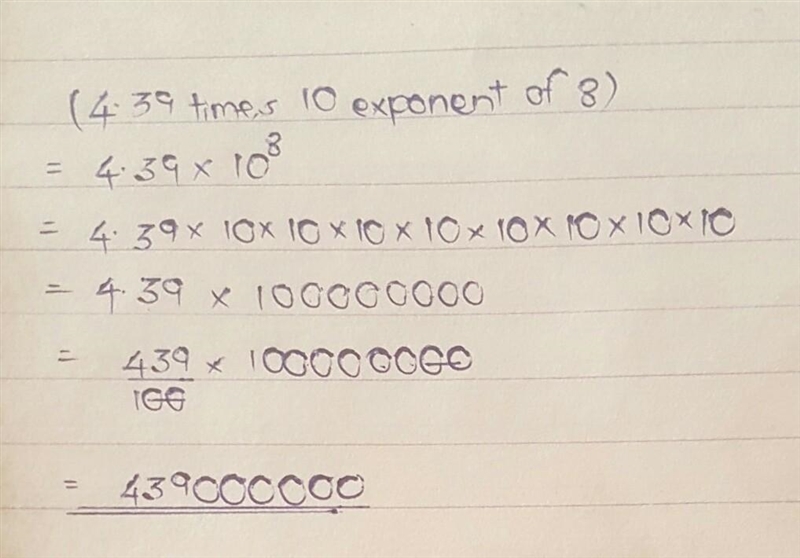 (4.39 times 10 exponent of 8)
= 4.39 × 10⁸
= 4.39 × 10 × 10 × 10 × 10 × 10 × 10 × 10 × 10
= 4.39 × 100000000
= 439/100 × 100000000
= 439000000